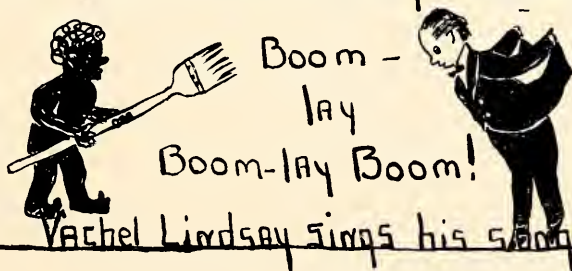 Boom -
lay
Boom-lay Boom!
Vachel Lindsay sings his song